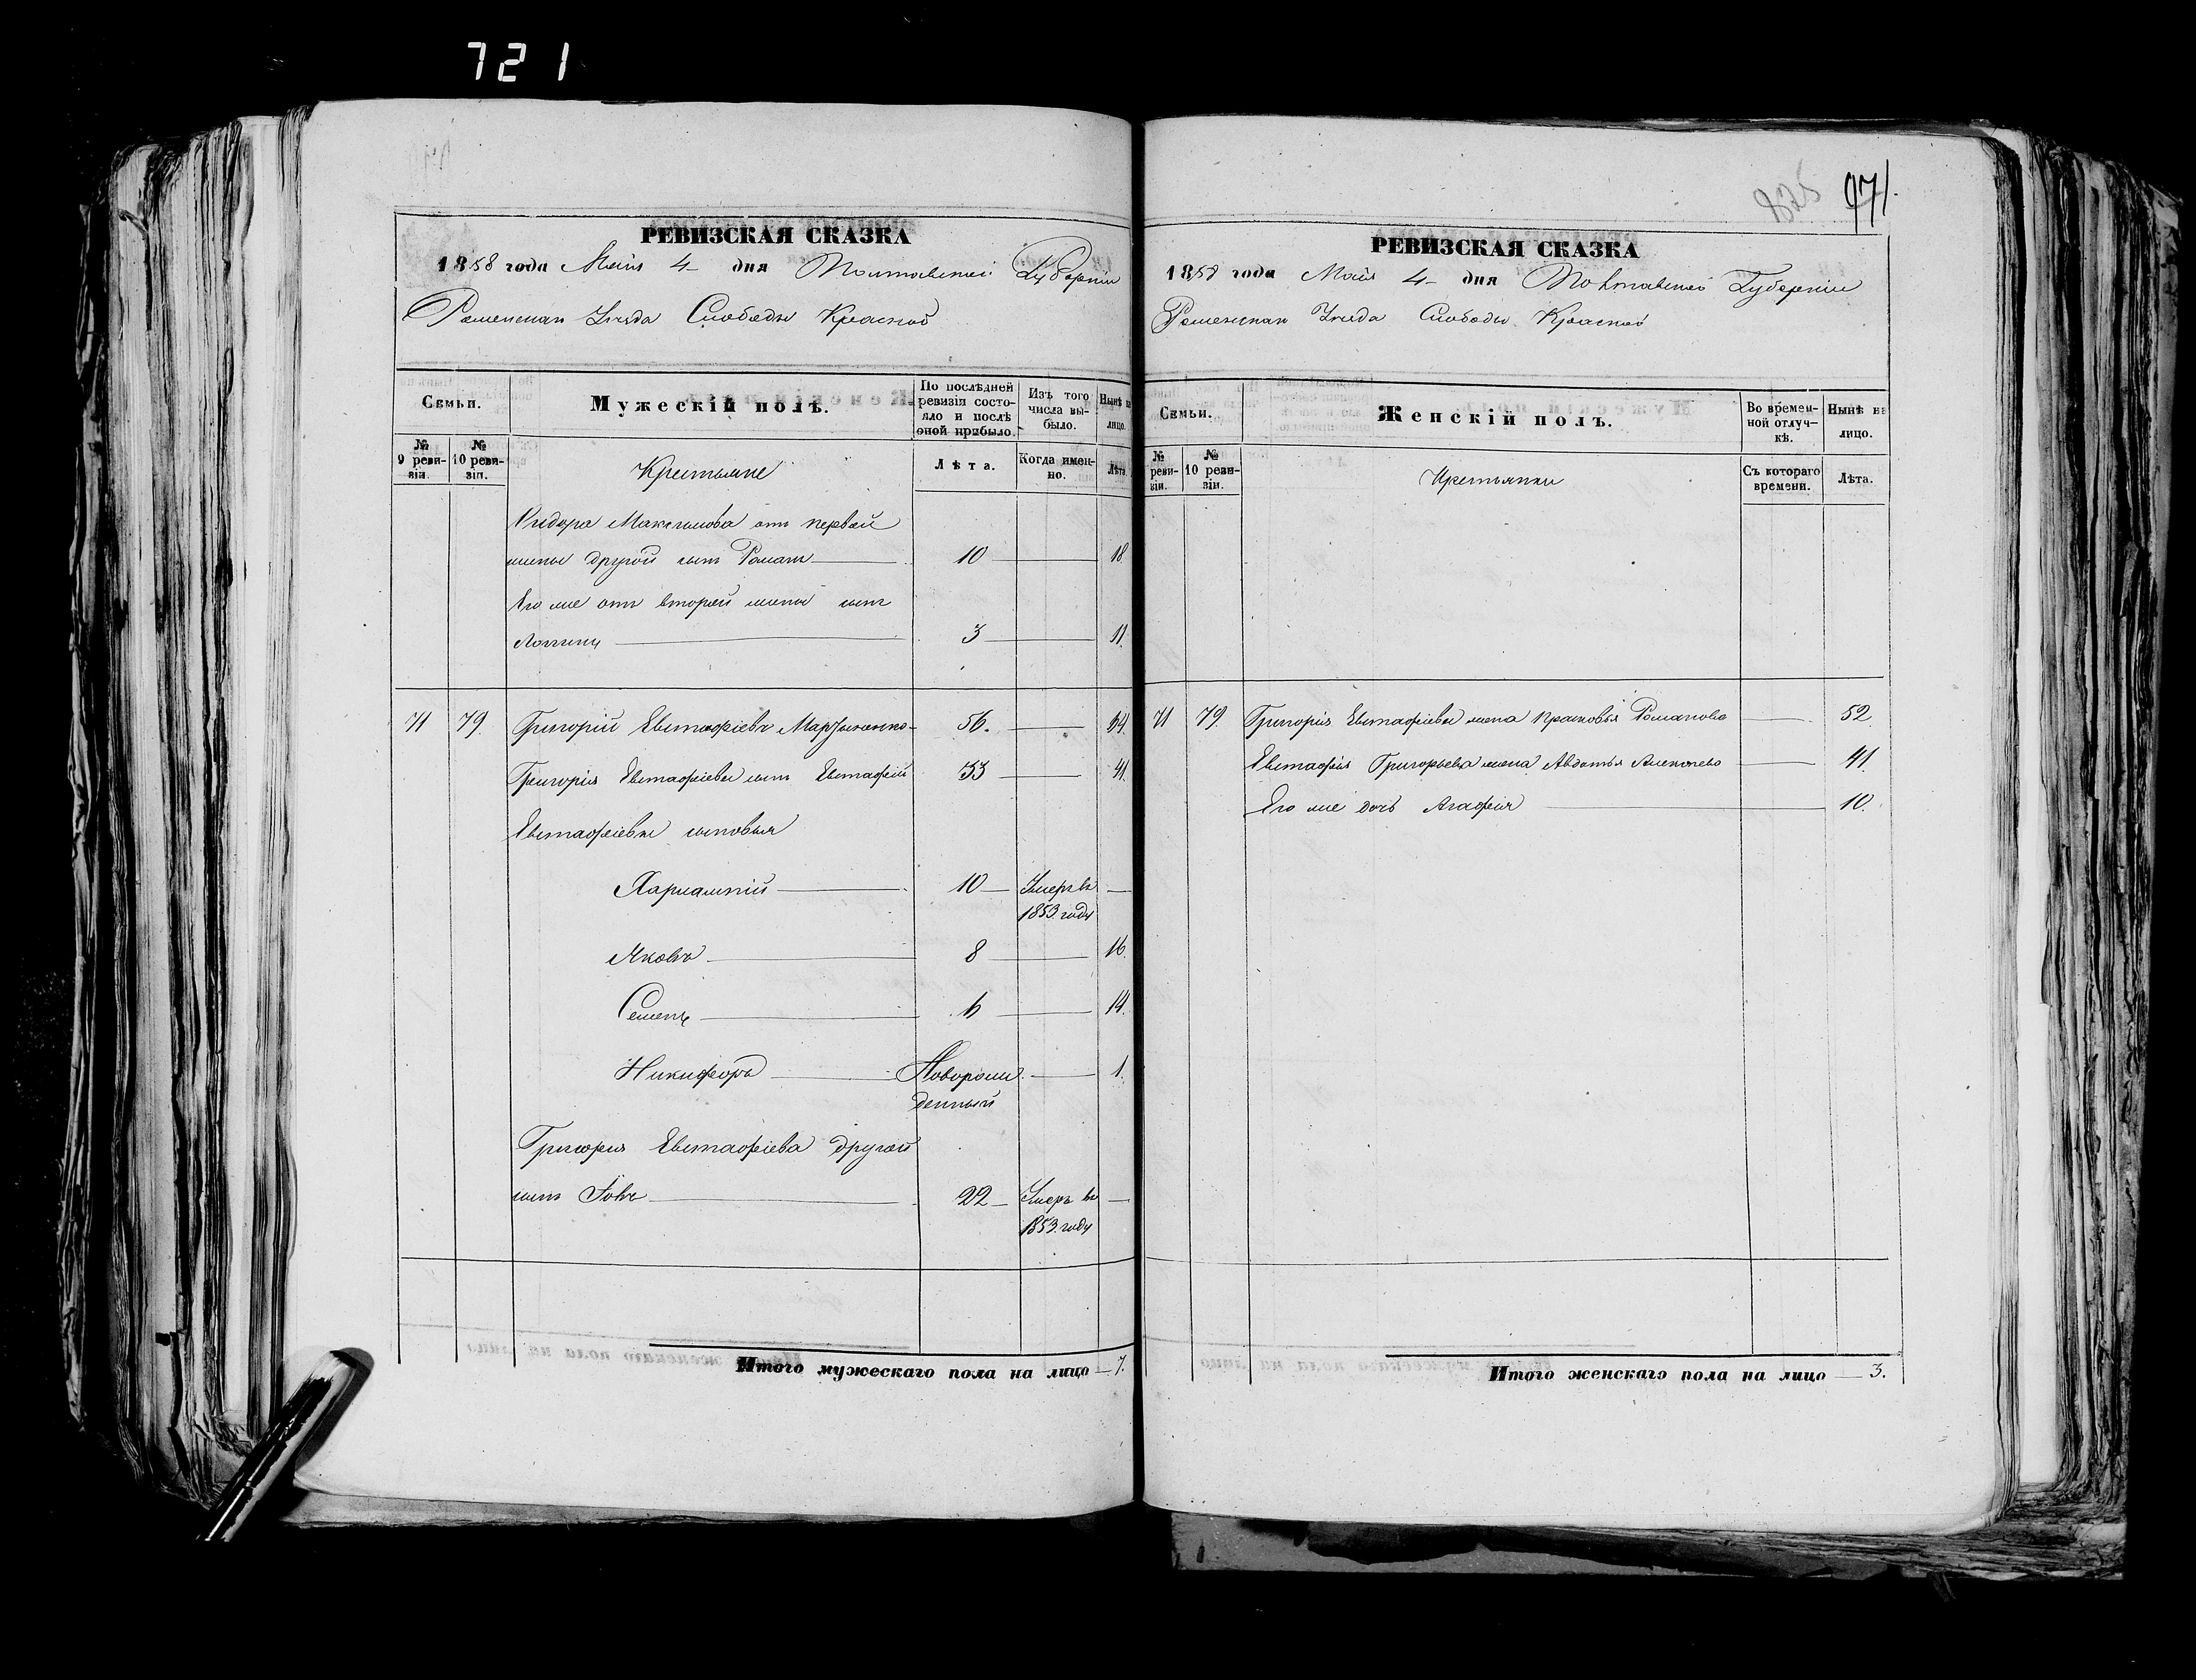 721
825 971.
РЕВИЗСКАЯ СКАЗКА
1858 года Мая 4 дня Полтавской Губерніи
Роменскаго Уѣзда Слободы Красной
Семьи.
Мужескій полъ.
По послѣдней ревизіи состояло и послѣ оной прибыло.
Изъ того числа выбыло.
Нынѣ на лицо.
№ 9 ревизіи.
№ 10 ревизіи.
Крестьяне
Лѣта.
Когда именно.
Лѣта.
Сидора Максимова отъ первой
жены другой сынъ Романъ 10 18
Его же отъ второй жены сынъ
Логинъ 3 11.
71 79. Григорій Евстафіевъ Мартыненко 56. 64
Григорія Евстафіева сынъ Евстафій 33 41.
Евстафіевы сыновья
Харлампій 10 Умеръ въ 1853 году
Яковъ 8 16.
Семенъ 6 14.
Никифоръ Новорожденный 1.
Григорія Евстафіева другой
сынъ Іовъ 22 Умеръ въ 1853 году
Итого мужескаго пола на лицо 7.
РЕВИЗСКАЯ СКАЗКА
1858 года Мая 4 дня Полтавской Губерніи
Роменскаго Уѣзда Слободы Красной
Семьи.
Женскій полъ.
Во временной отлучкѣ.
Нынѣ на лицо.
№ ревизіи.
№ 10 ревизіи.
Крестьянки
Съ котораго времени.
Лѣта.
71 79. Григорія Евстафіева жена Прасковья Романова 52.
Евстафія Григорьева жена Авдотья Алексѣева 41.
Его же дочь Агафія 10.
Итого женскаго пола на лицо 3.